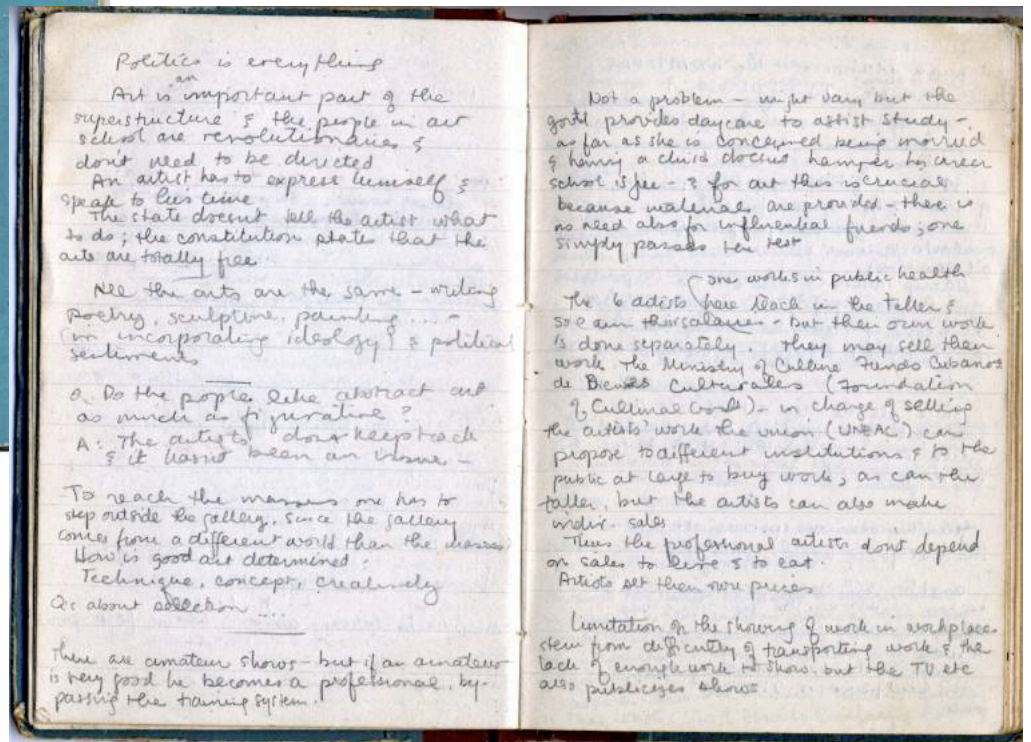 Politics is everything
Art is an important part of the
superstructure & the people in art
school are revolutionaries &
don't need to be directed
An artist has to express himself &
speak to his time
The state doesnt tell the artist what
to do; the constitution states that the
arts are totally free.
All the arts are the same - writing
poetry, sculpture, painting ... -
(in incorporating ideology) & political
sentiments
Q. Do the people like abstract art
as much as figurative?
A: The artists dont keep track
& it hasnt been an issue -
To reach the masses one has to
step outside the gallery, since the gallery
comes from a different world than the masses
How is good art determined:
Technique, concept, creativity
Q: about selection
There are amateur shows - but if an amateur
is very good he becomes a professional, by-
passing the training system.
Not a problem - might vary but the
govt provides daycare to assist study -
as far as she is concerned being married
& having a child doesnt hamper her career
school is free - & for art this is crucial
because materials are provided - there is
no need also for influential friends; one
simply passes the test
one works in public health
The 6 artists here teach in the taller &
so earn their salaries - but their own work
is done separately. They may sell their
work. The Ministry of Culture Fundo Cubano
de Bienes Culturales (Foundation
of Cultural Goods) - in charge of selling
the artists' work the union (UNEAC) can
propose to different institutions & to the
public at large to buy work; as can the
taller, but the artists can also make
indiv. sales
Thus the professional artists dont depend
on sales to live & to eat.
Artists set their own prices
Limitation on the showing of work in workplaces
stem from difficulty of transporting work & the
lack of enough work to show, but the TV etc
also publicizes shows